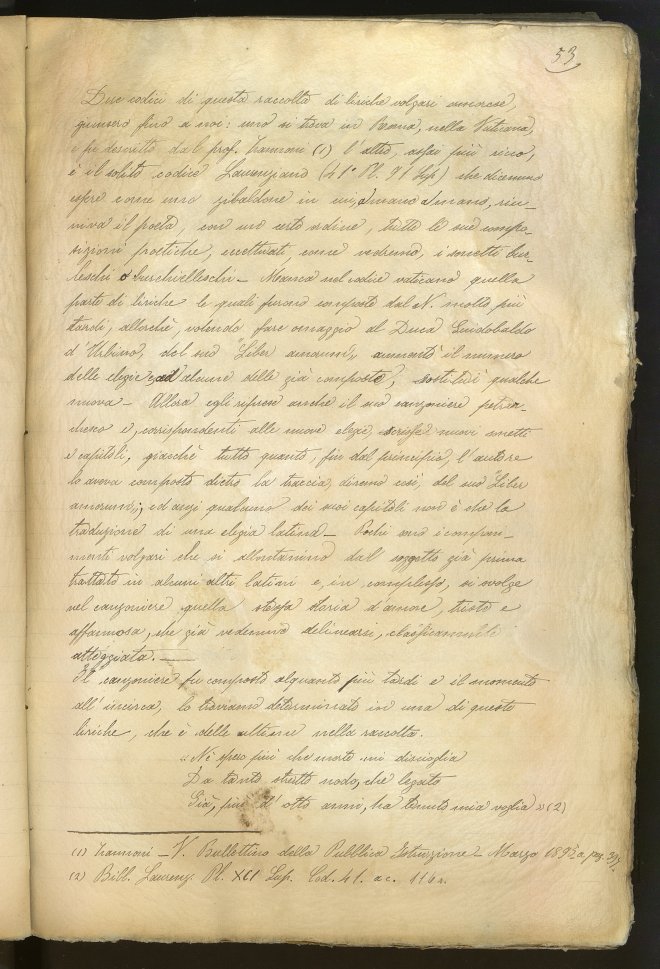 53
Due codici di questa raccolta di liriche volgari amorose,
giunsero fino a noi: uno si trova in Roma, nella Vaticana,
e fu descritto dal prof. Zannoni (1) l'altro, assai più ricco,
è il solito codice Laurenziano (41° Pl. 91 Sup) che dicemmo
essere come uno zibaldone in cui, a mano a mano, riu-
niva il poeta, con un certo ordine, tutte le sue compo-
sizioni poetiche, eccettuati, come vedremo, i sonetti bur-
leschi o burchielleschi – Manca nel codice vaticano quella
parte di liriche le quali furono composte dal N. molto più
tardi, allorchè, volendo fare omaggio al Duca Guidobaldo
d'Urbino, del suo "Liber amorum", aumentò il numero
delle elegie ed alcune delle già composte, sostituì qualche
nuova – Allora egli rifuse anche il suo canzoniere petrar-
chesco e, corrispondenti alle nuove elegie, scrisse nuovi sonetti
e capitoli, giacchè tutto quanto, fin dal principio, l'autore
lo aveva composto dietro la traccia, diremo così, del suo "Liber
amorum"; ed anzi qualcuno dei suoi capitoli non è che la
traduzione di una elegia latina – Pochi sono i componi-
menti volgari che si allontanino dal soggetto già prima
trattato in alcuni altri latini e, in complesso, si svolge
nel canzoniere quella stessa storia d'amore, triste e
affannosa, che già vedemmo delinearsi, classicamente
atteggiata. –
Il canzoniere fu composto alquanto più tardi e il momento
all'incirca, lo troviamo determinato in una di queste
liriche, che è delle ultime nella raccolta.
"Nè spero più che morte mi discioglia
Da tanto stretto nodo, che legato
Già, più d'otto anni, ha tenuto mia voglia" (2)
(1) Zannoni – V. Bullettino della Pubblica Istruzione – Marzo 1895
(2) Bibl. Laurenz. Pl. XCI Sup. Cod. 41. ac. 116r.